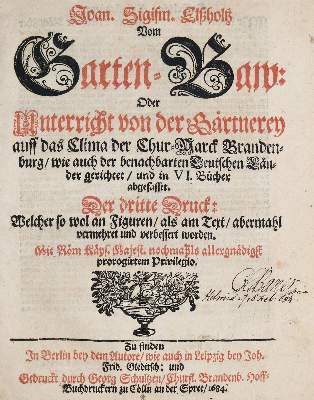 Joan. Sigism. Elßholtz
Vom
Garten-Baw:
Oder
Unterricht von der Gärtnerey
auff das Clima der Chur-Marck Branden-
burg/ wie auch der benachbarten Teutschen Län-
der gerichtet/ und in VI. Bücher
abgefasset.
Der dritte Druck:
Welcher so wol an Figuren/ als am Text/ abermahl
vermehret und verbessert worden.
Mit Röm. Käys. Majest. nochmahls allergnädigst
prorogirtem Privilegio.
Zu finden
In Berlin bey dem Autore/ wie auch in Leipzig bey Joh.
Frid. Gleditsch: und
Gedruckt durch Georg Schultzen/ Churfl. Brandenb. Hoff-
Buchdruckern zu Cölln an der Spree/ 1684.